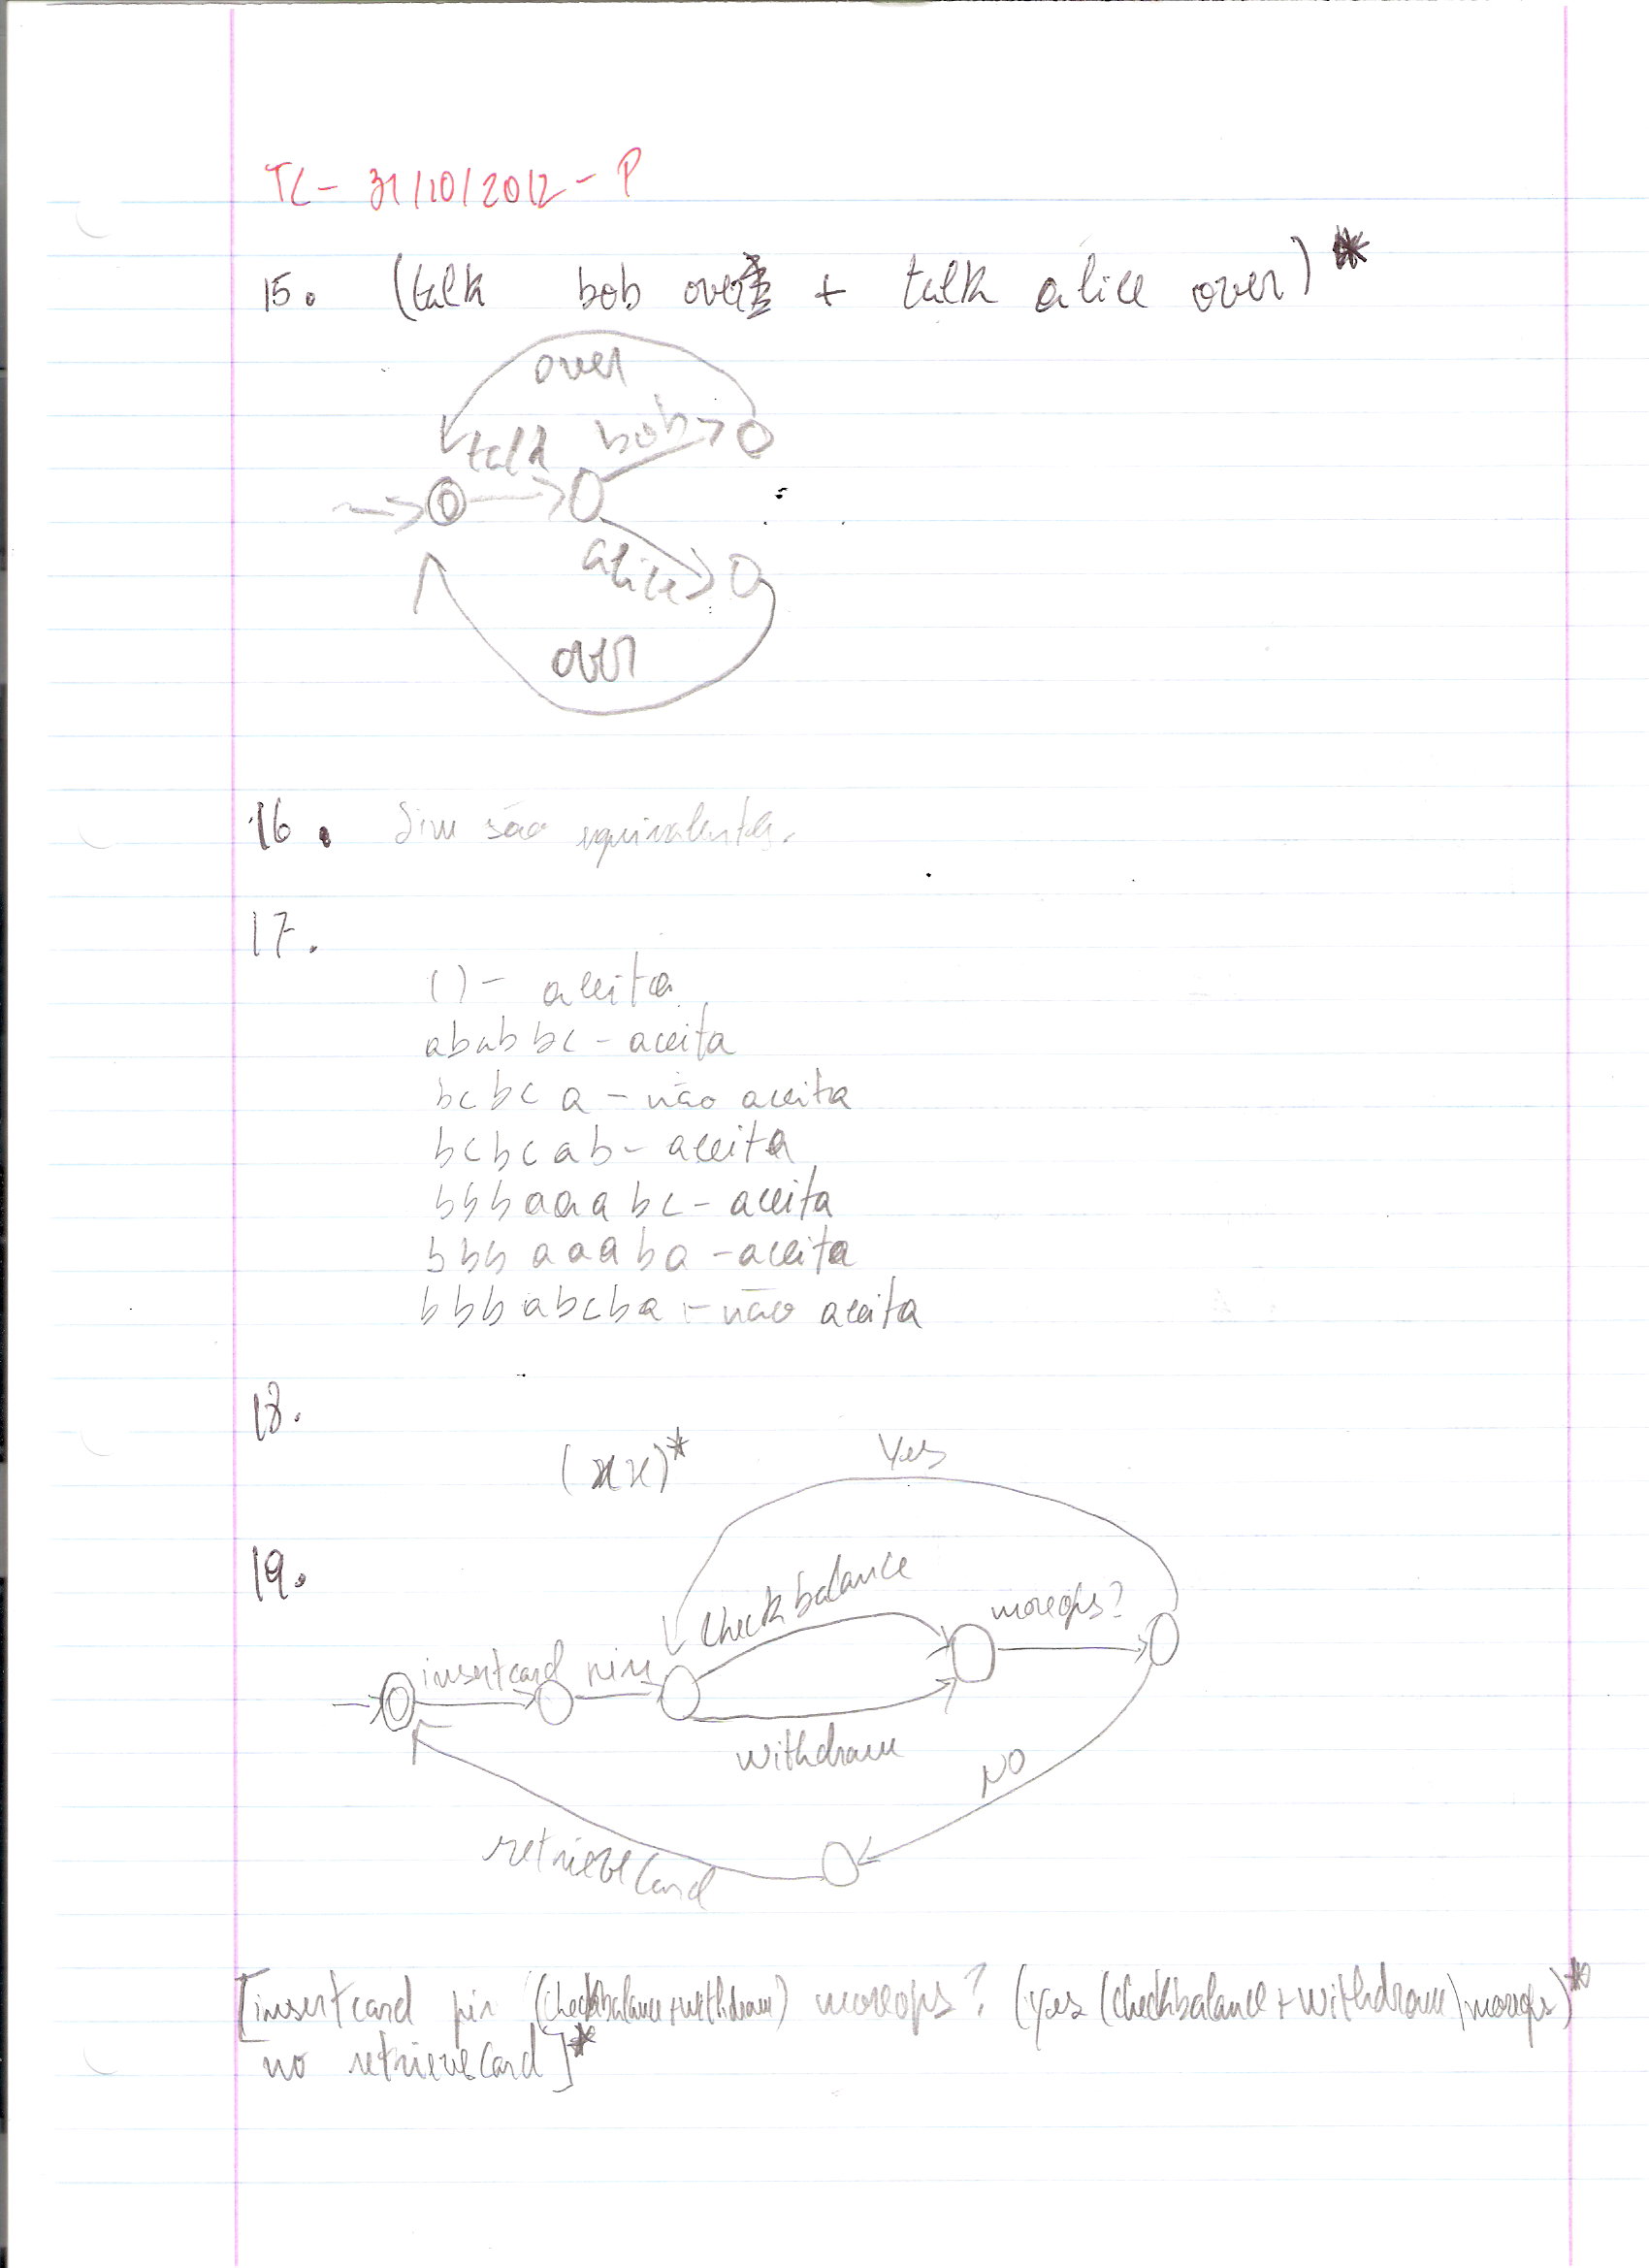 TC - 31/10/2012 - P
15. (talk bob over + talk alice over)*
over
talk bob
alice
over
16. Sim são equivalentes.
17.
() - aceita
ababbc - aceita
bcbca - não aceita
bcbcab - aceita
bbbaaabc - aceita
bbbaaaba - aceita
bbbabcba - não aceita
18.
(xx)*
Yes
19.
checkbalance
moreops?
insertcard pin
withdraw
NO
retrieveCard
[insertcard pin (checkbalance+withdraw) moreops? (yes (checkbalance+withdraw) moreops)*
no retrieveCard]*